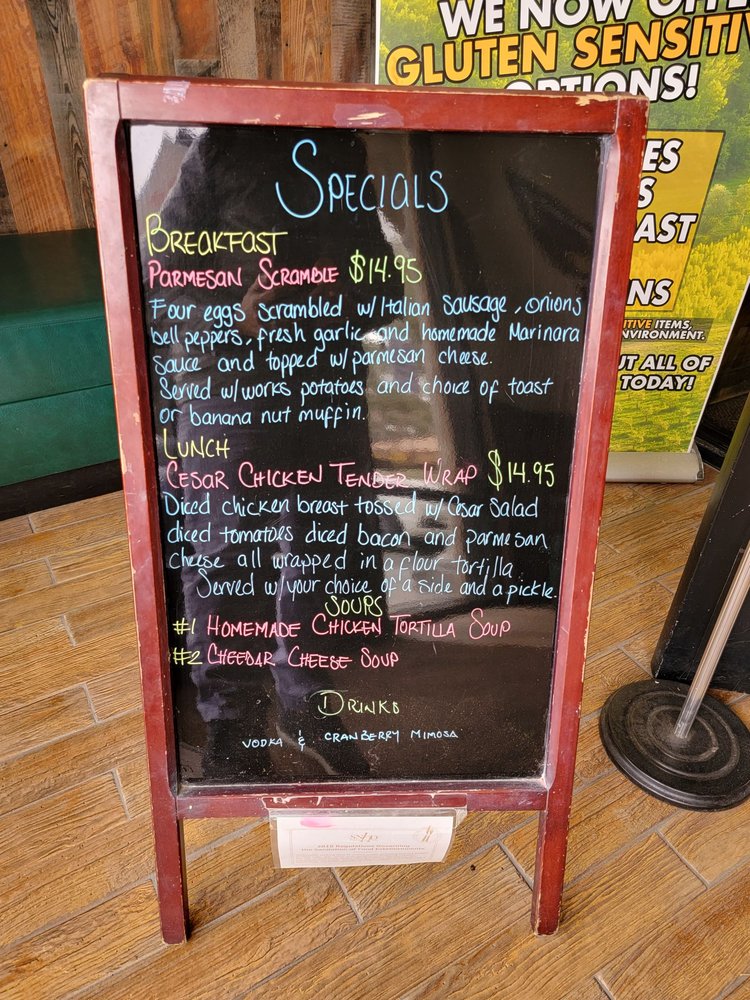 WE NOW OFFE
GLUTEN SENSITIV
OPTIONS!
SPECIALS
BREAKFAST
PARMESAN SCRAMBLE $14.95
Four eggs scrambled w/Italian sausage, onions
bell peppers, fresh garlic and homemade Marinara
sauce and topped w/parmesan cheese.
Served w/works potatoes and choice of toast
or banana nut muffin.
LUNCH
CESAR CHICKEN TENDER WRAP $14.95
Diced chicken breast tossed w/Cesar Salad
diced tomatoes diced bacon and parmesan
cheese all wrapped in a flour tortilla.
Served w/your choice of a side and a pickle.
SOUPS
#1 HOMEMADE CHICKEN TORTILLA SOUP
#2 CHEEDAR CHEESE SOUP
DRINKS
VODKA & CRANBERRY MIMOSA
ES
S
AST
NS
ITIVE ITEMS,
NVIRONMENT.
UT ALL OF
TODAY!